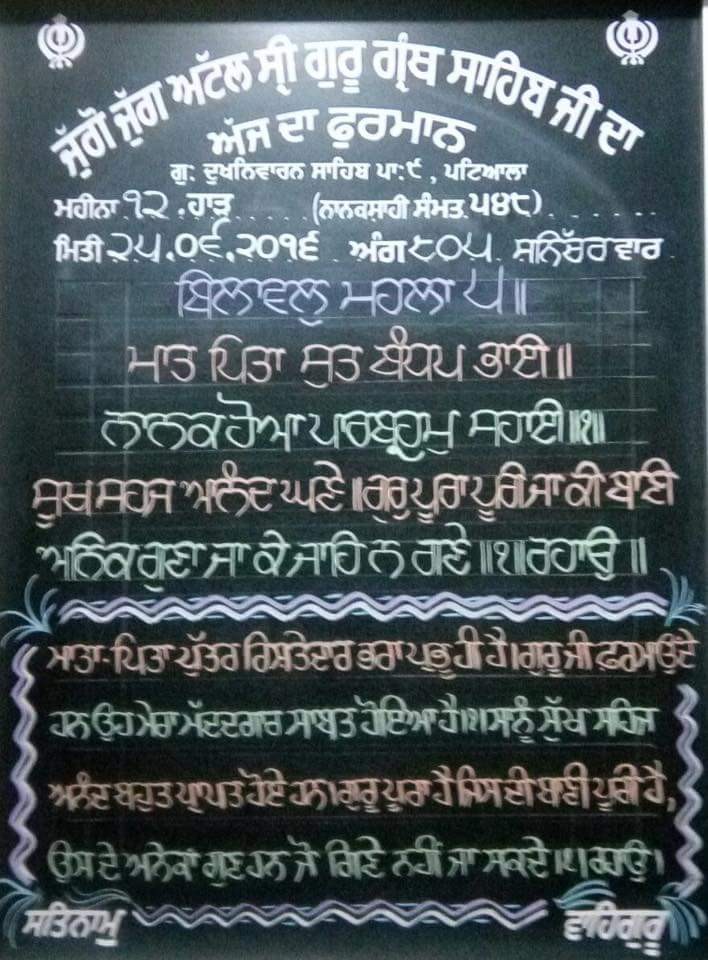 ਜੁੱਗੋ ਜੁੱਗ ਅਟੱਲ ਸ੍ਰੀ ਗੁਰੂ ਗ੍ਰੰਥ ਸਾਹਿਬ ਜੀ ਦਾ
ਅੱਜ ਦਾ ਫੁਰਮਾਨ
ਗੁ: ਦੁਖਨਿਵਾਰਨ ਸਾਹਿਬ ਪਾ:੯, ਪਟਿਆਲਾ
ਮਹੀਨਾ ੧੨.ਹਾੜ (ਨਾਨਕਸ਼ਾਹੀ ਸੰਮਤ ੫੪੮)
ਮਿਤੀ ੨੫.੦੬.੨੦੧੬ ਅੰਗ ੮੦੫ ਸਨਿੱਚਰਵਾਰ
ਬਿਲਾਵਲੁ ਮਹਲਾ ੫॥
ਮਾਤ ਪਿਤਾ ਸੁਤ ਬੰਧਪ ਭਾਈ॥
ਨਾਨਕ ਹੋਆ ਪਾਰਬ੍ਰਹਮੁ ਸਹਾਈ॥੧॥
ਸੂਖ ਸਹਜ ਆਨੰਦ ਘਣੇ॥ਗੁਰੁ ਪੂਰਾ ਪੂਰੀ ਜਾ ਕੀ ਬਾਣੀ
ਅਨਿਕ ਗੁਣਾ ਜਾ ਕੇ ਜਾਹਿ ਨ ਗਣੇ॥੧॥ਰਹਾਉ॥
ਮਾਤਾ-ਪਿਤਾ ਪੁੱਤਰ ਰਿਸ਼ਤੇਦਾਰ ਭਰਾ ਪ੍ਰਭੂ ਹੀ ਹੈ।ਗੁਰੂ ਜੀ ਫ਼ਰਮਾਉਂਦੇ
ਹਨ ਉਹ ਮੇਰਾ ਮੱਦਦਗਾਰ ਸਾਬਤ ਹੋਇਆ ਹੈ।੧।ਸਾਨੂੰ ਸੁੱਖ ਸਹਿਜ
ਅਨੰਦ ਬਹੁਤ ਪ੍ਰਾਪਤ ਹੋਏ ਹਨ।ਗੁਰੂ ਪੂਰਾ ਹੈ ਜਿਸ ਦੀ ਬਾਣੀ ਪੂਰੀ ਹੈ,
ਉਸ ਦੇ ਅਨੇਕਾਂ ਗੁਣ ਹਨ ਜੋ ਗਿਣੇ ਨਹੀਂ ਜਾ ਸਕਦੇ।੧।ਰਹਾਉ।
ਸਤਿਨਾਮੁ ਵਾਹਿਗੁਰੂ